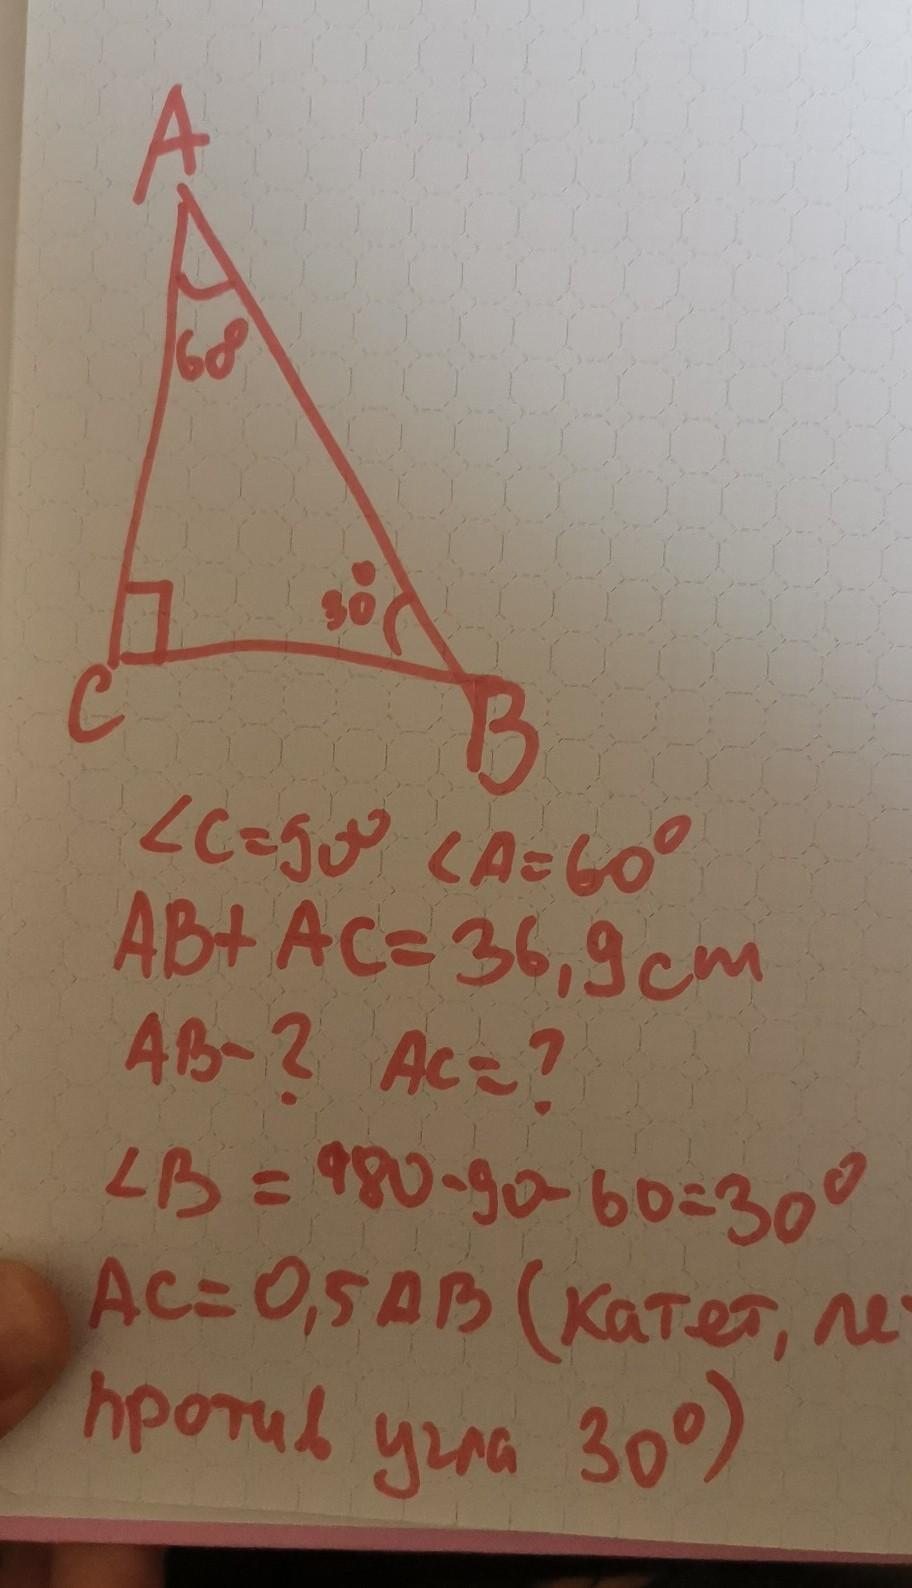 A
68
30°
C
B
∠C=90° ∠A=60°
AB+AC=36,9cm
AB-? AC=?
∠B=180-90-60=30°
AC=0,5AB (катет, ле
против угла 30°)